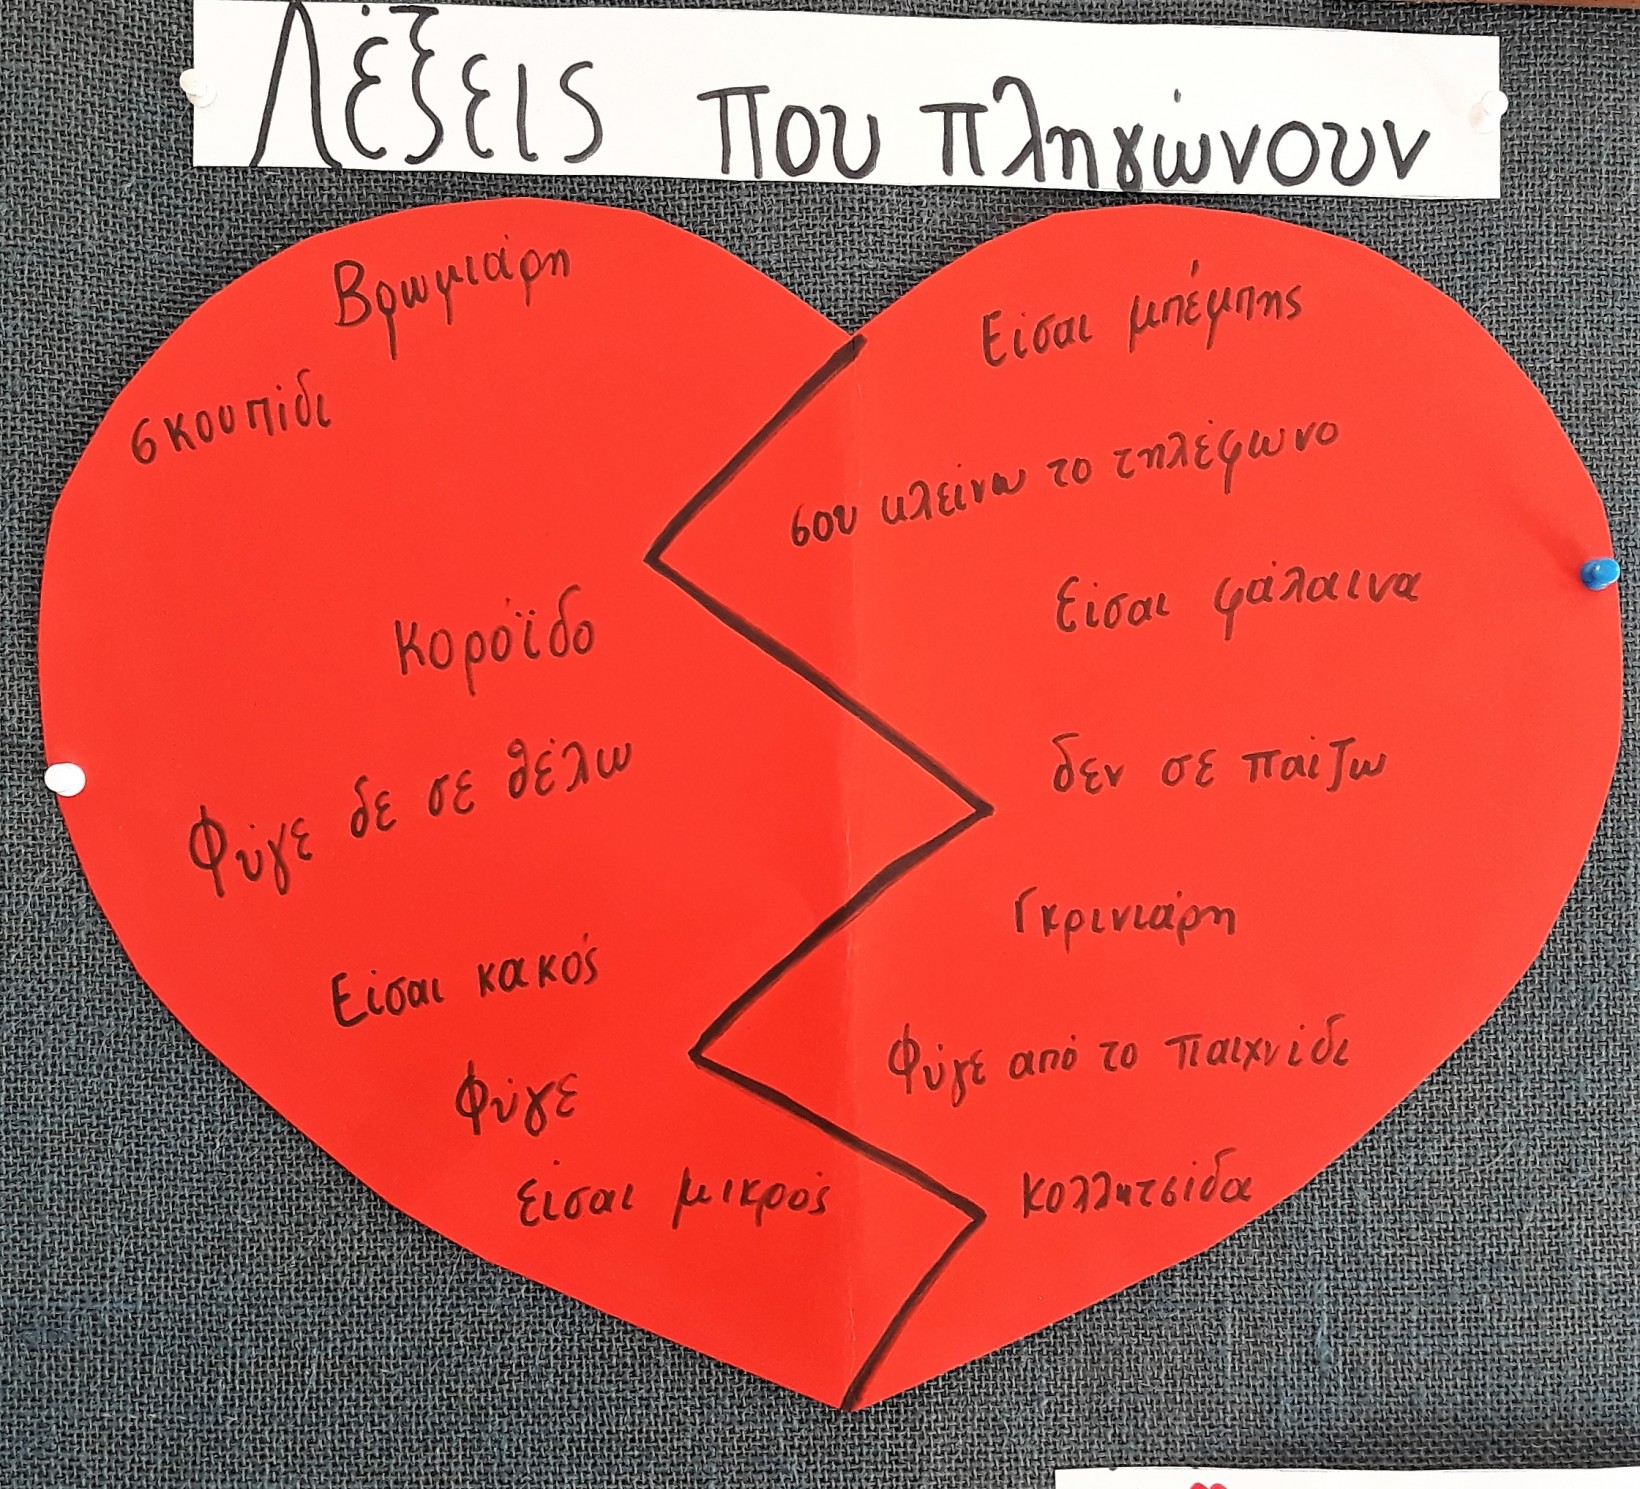 Λέξεις που πληγώνουν
Βρωμιάρη
σκουπίδι
Κορόϊδο
Φύγε δε σε θέλω
Είσαι κακός
Φύγε
είσαι μικρός
Είσαι μπέμπης
σου κλείνω το τηλέφωνο
Είσαι φάλαινα
δεν σε παίζω
Γκρινιάρη
Φύγε από το παιχνίδι
Κολλητσίδα